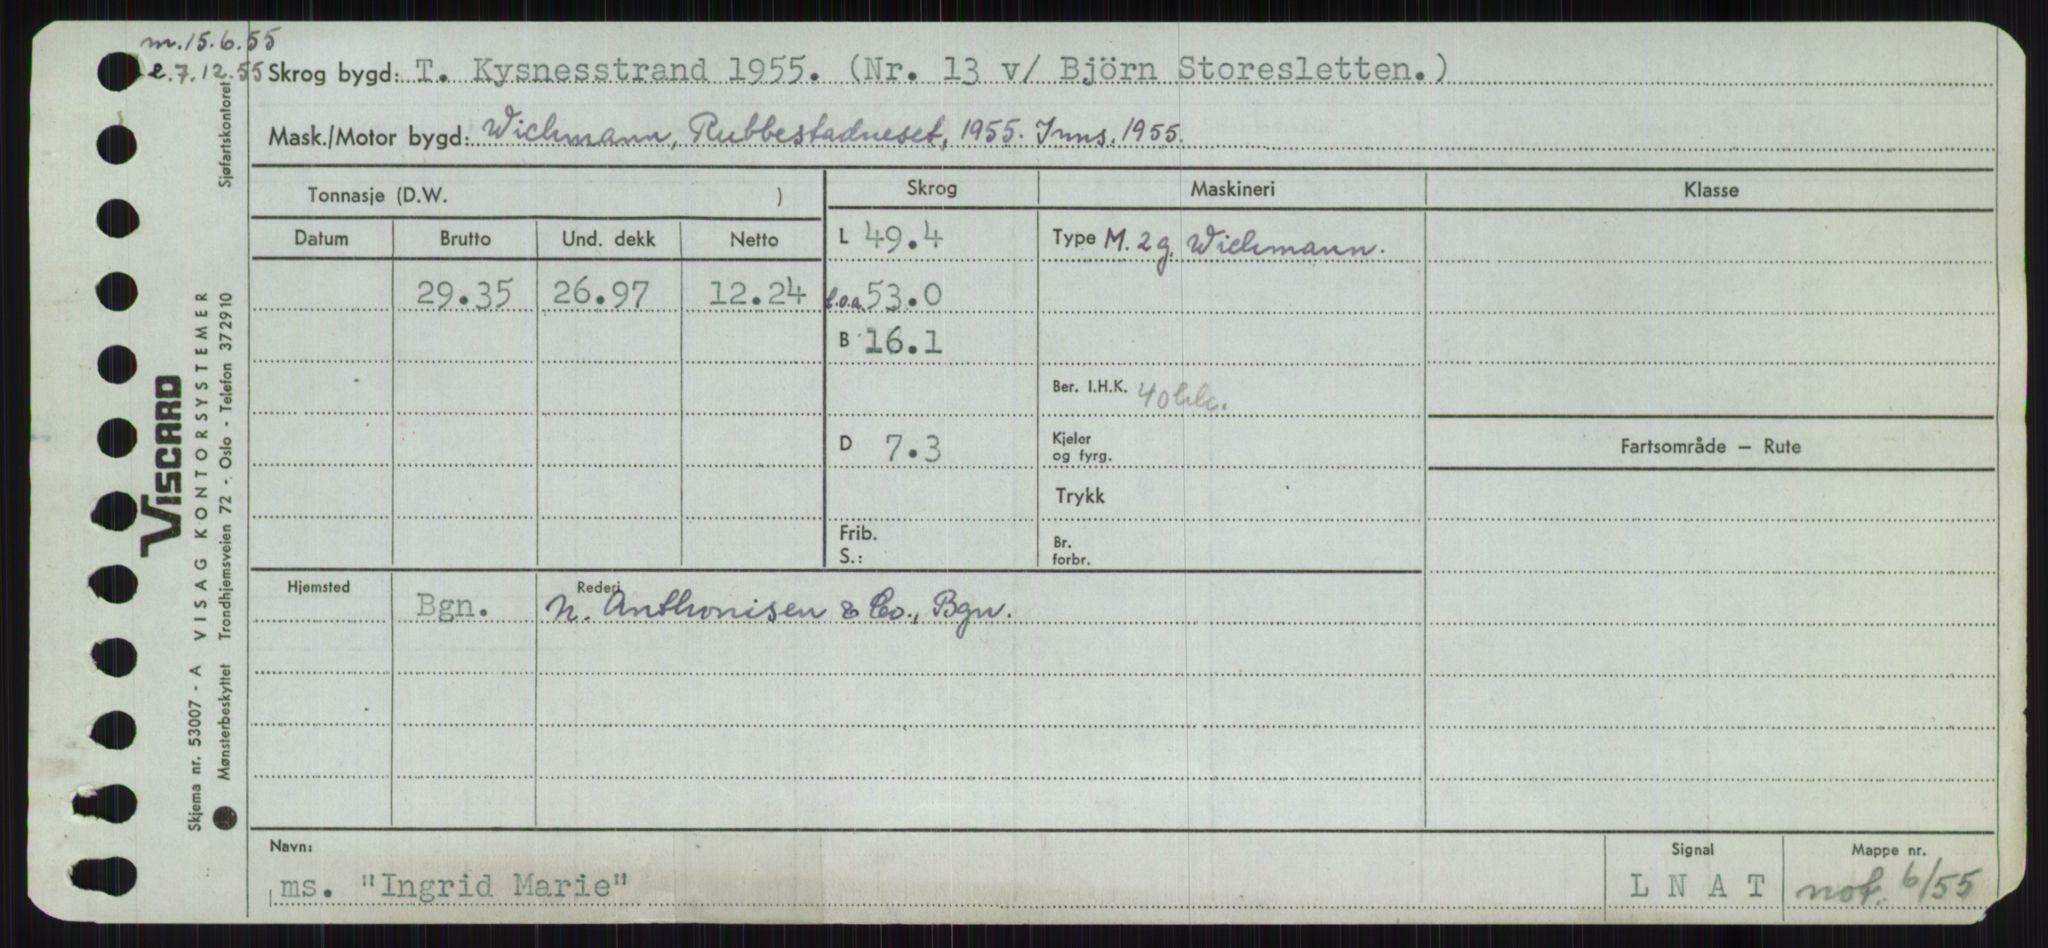 m.15.6.55
e.7.12.55
Skrog bygd: T. Kysnesstrand 1955. (Nr. 13 v/ Björn Storesletten.)
Mask./Motor bygd: Wichmann, Rubbestadneset, 1955. Inns. 1955.
Tonnasje (D.W. )
Skrog Maskineri Klasse
Datum Brutto Und. dekk Netto
L 49.4 Type M. 2 g. Wichmann.
29.35 26.97 12.24 l.o.a. 53.0
B 16.1
Ber. I.H.K. 40
D 7.3 Kjeler og fyrg.
Fartsområde — Rute
Trykk
Frib.
S.:
Br.
forbr.
Hjemsted Bgn. Rederi N. Anthonisen & Co., Bgn.
Navn: Signal Mappe nr.
ms. "Ingrid Marie" L N A T not. 6/55
Sjøfartskontoret
VISCARD
VISAG KONTORSYSTEMER
Trondhjemsveien 72 -. Oslo - Telefon 372910
Skjema nr. 53007 - A
Mønsterbeskyttet